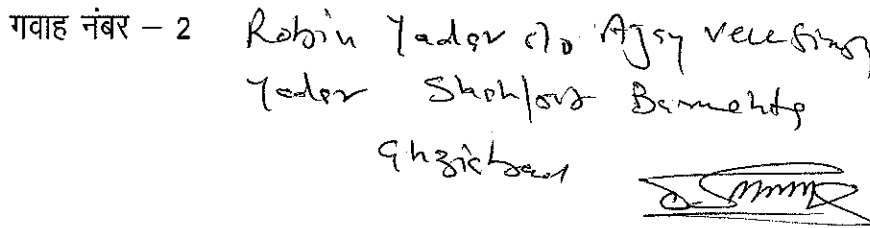 गवाह नंबर – 2 Robin Yadav S/o Ajay Veer Singh
Yadav Shahpur Bamheta
Ghaziabad